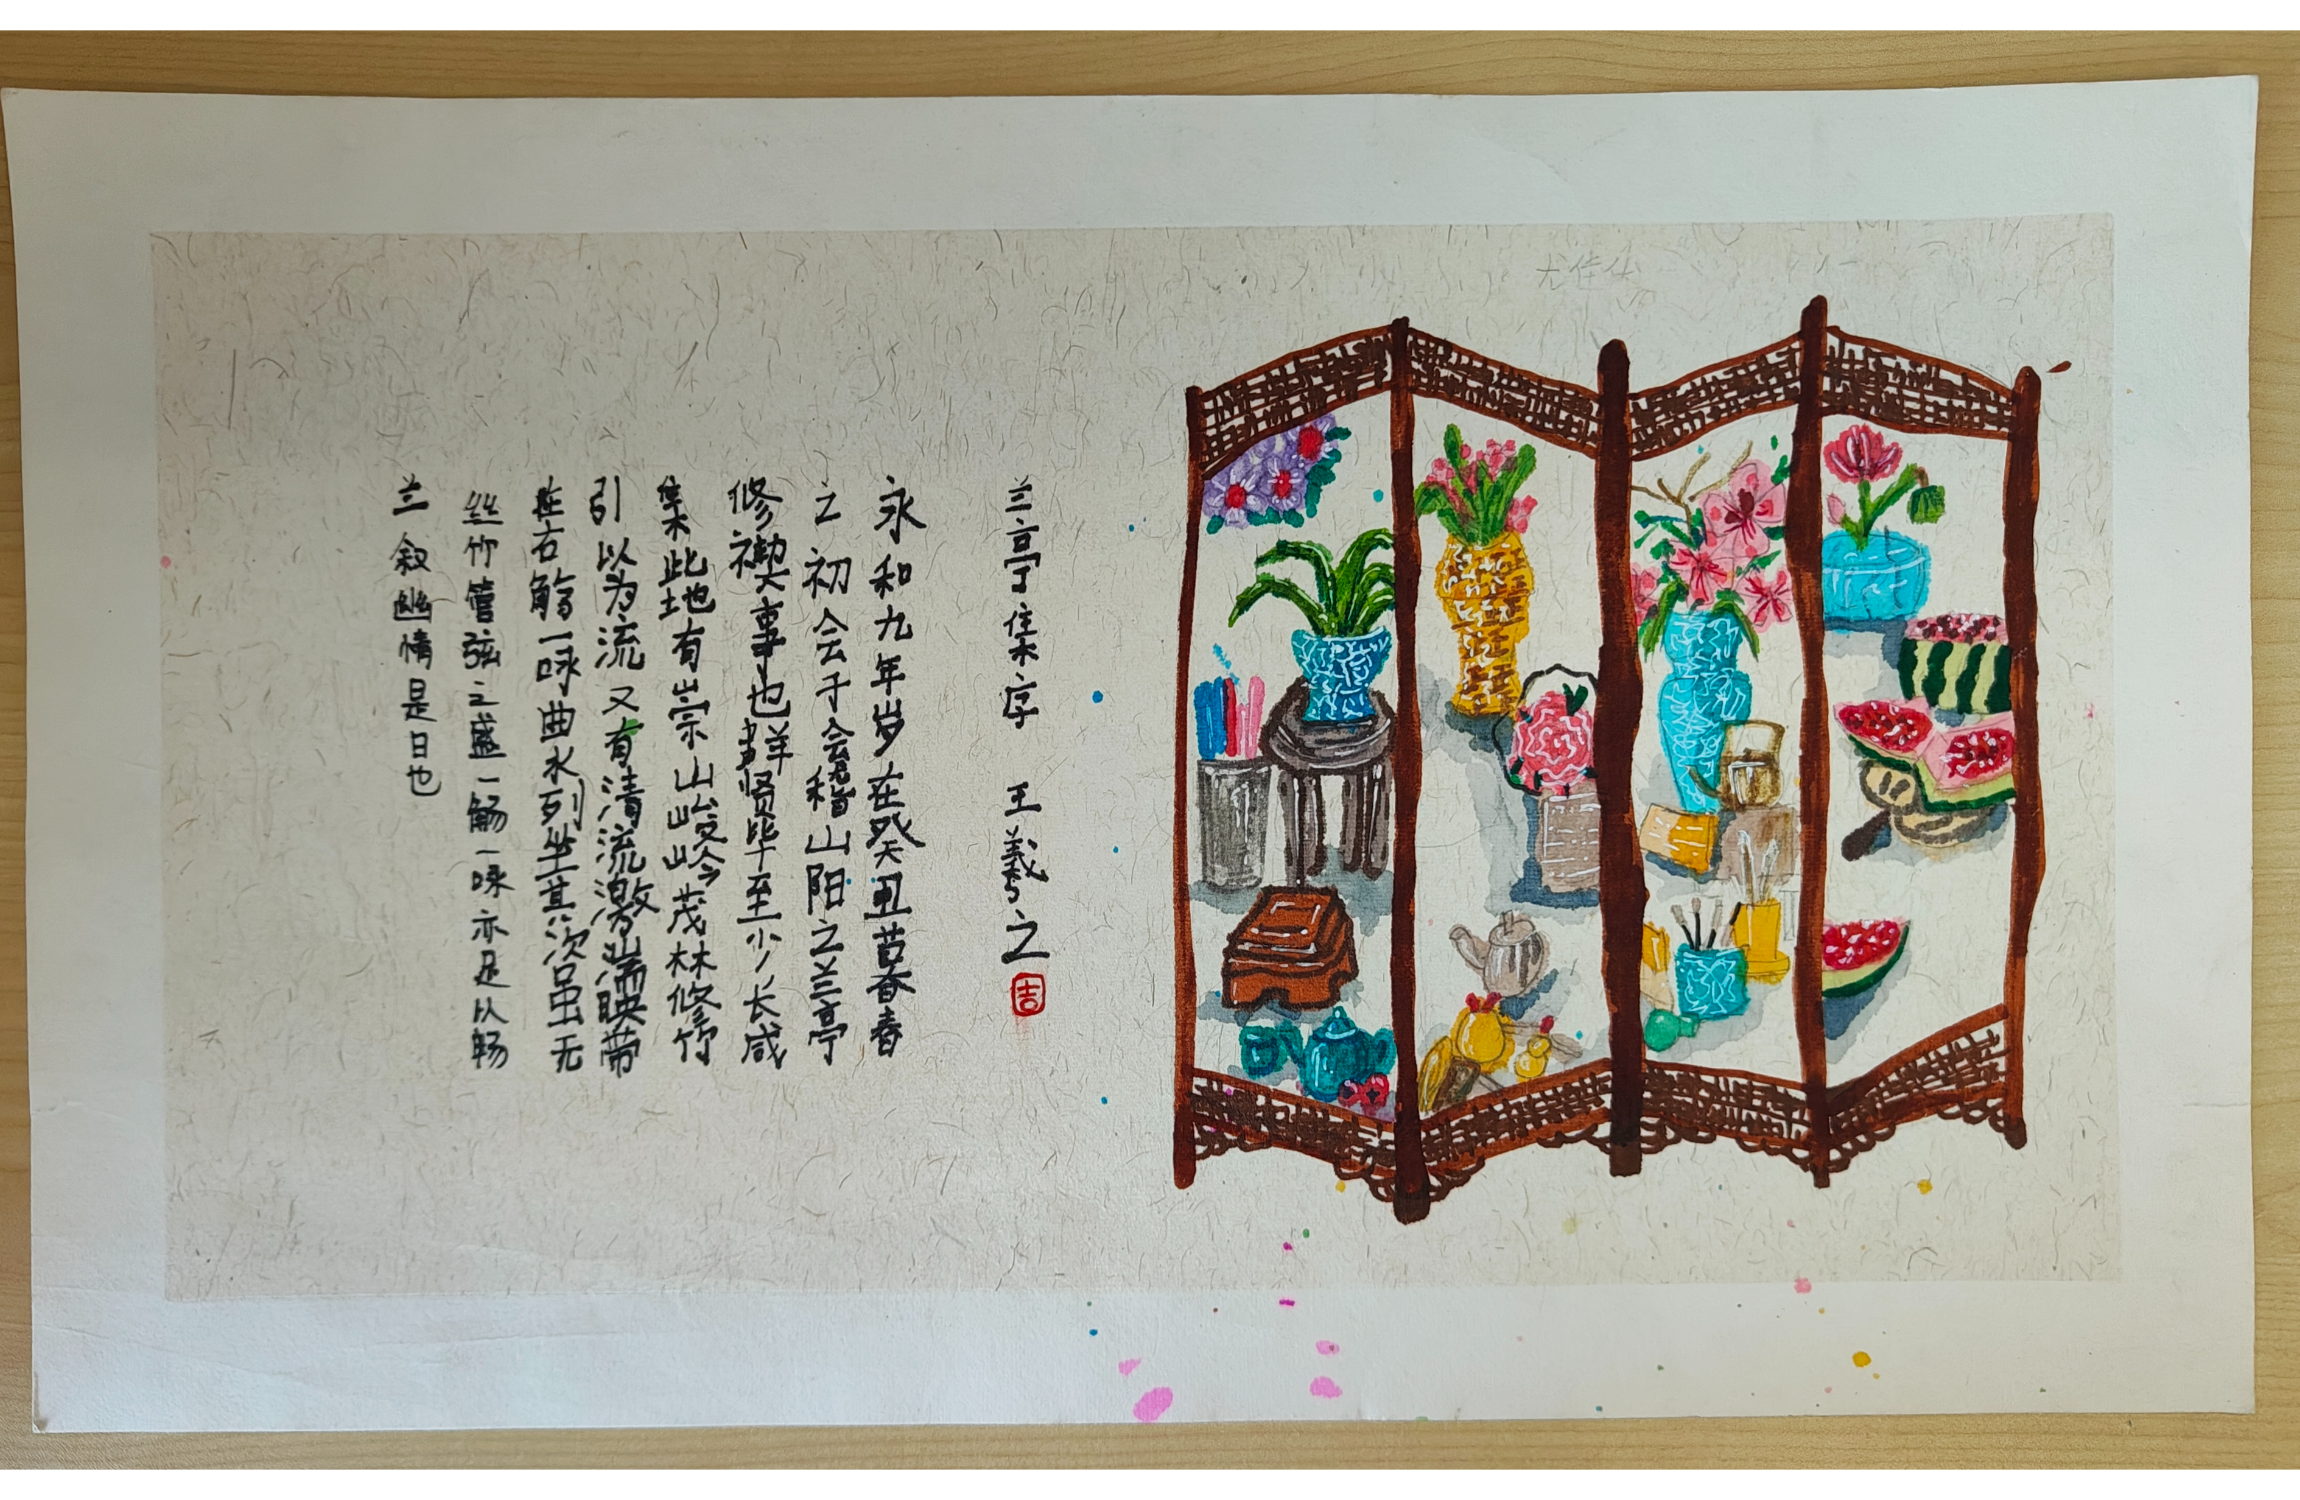 兰亭集序 王羲之 吉
永和九年岁在癸丑暮春
之初会于会稽山阳之兰亭
修禊事也群贤毕至少长咸
集此地有崇山峻岭茂林修竹
引以为流又有清流激湍映带
在右觞一咏曲水列坐其次虽无
丝竹管弦之盛一觞一咏亦足以畅
兰叙幽情是日也